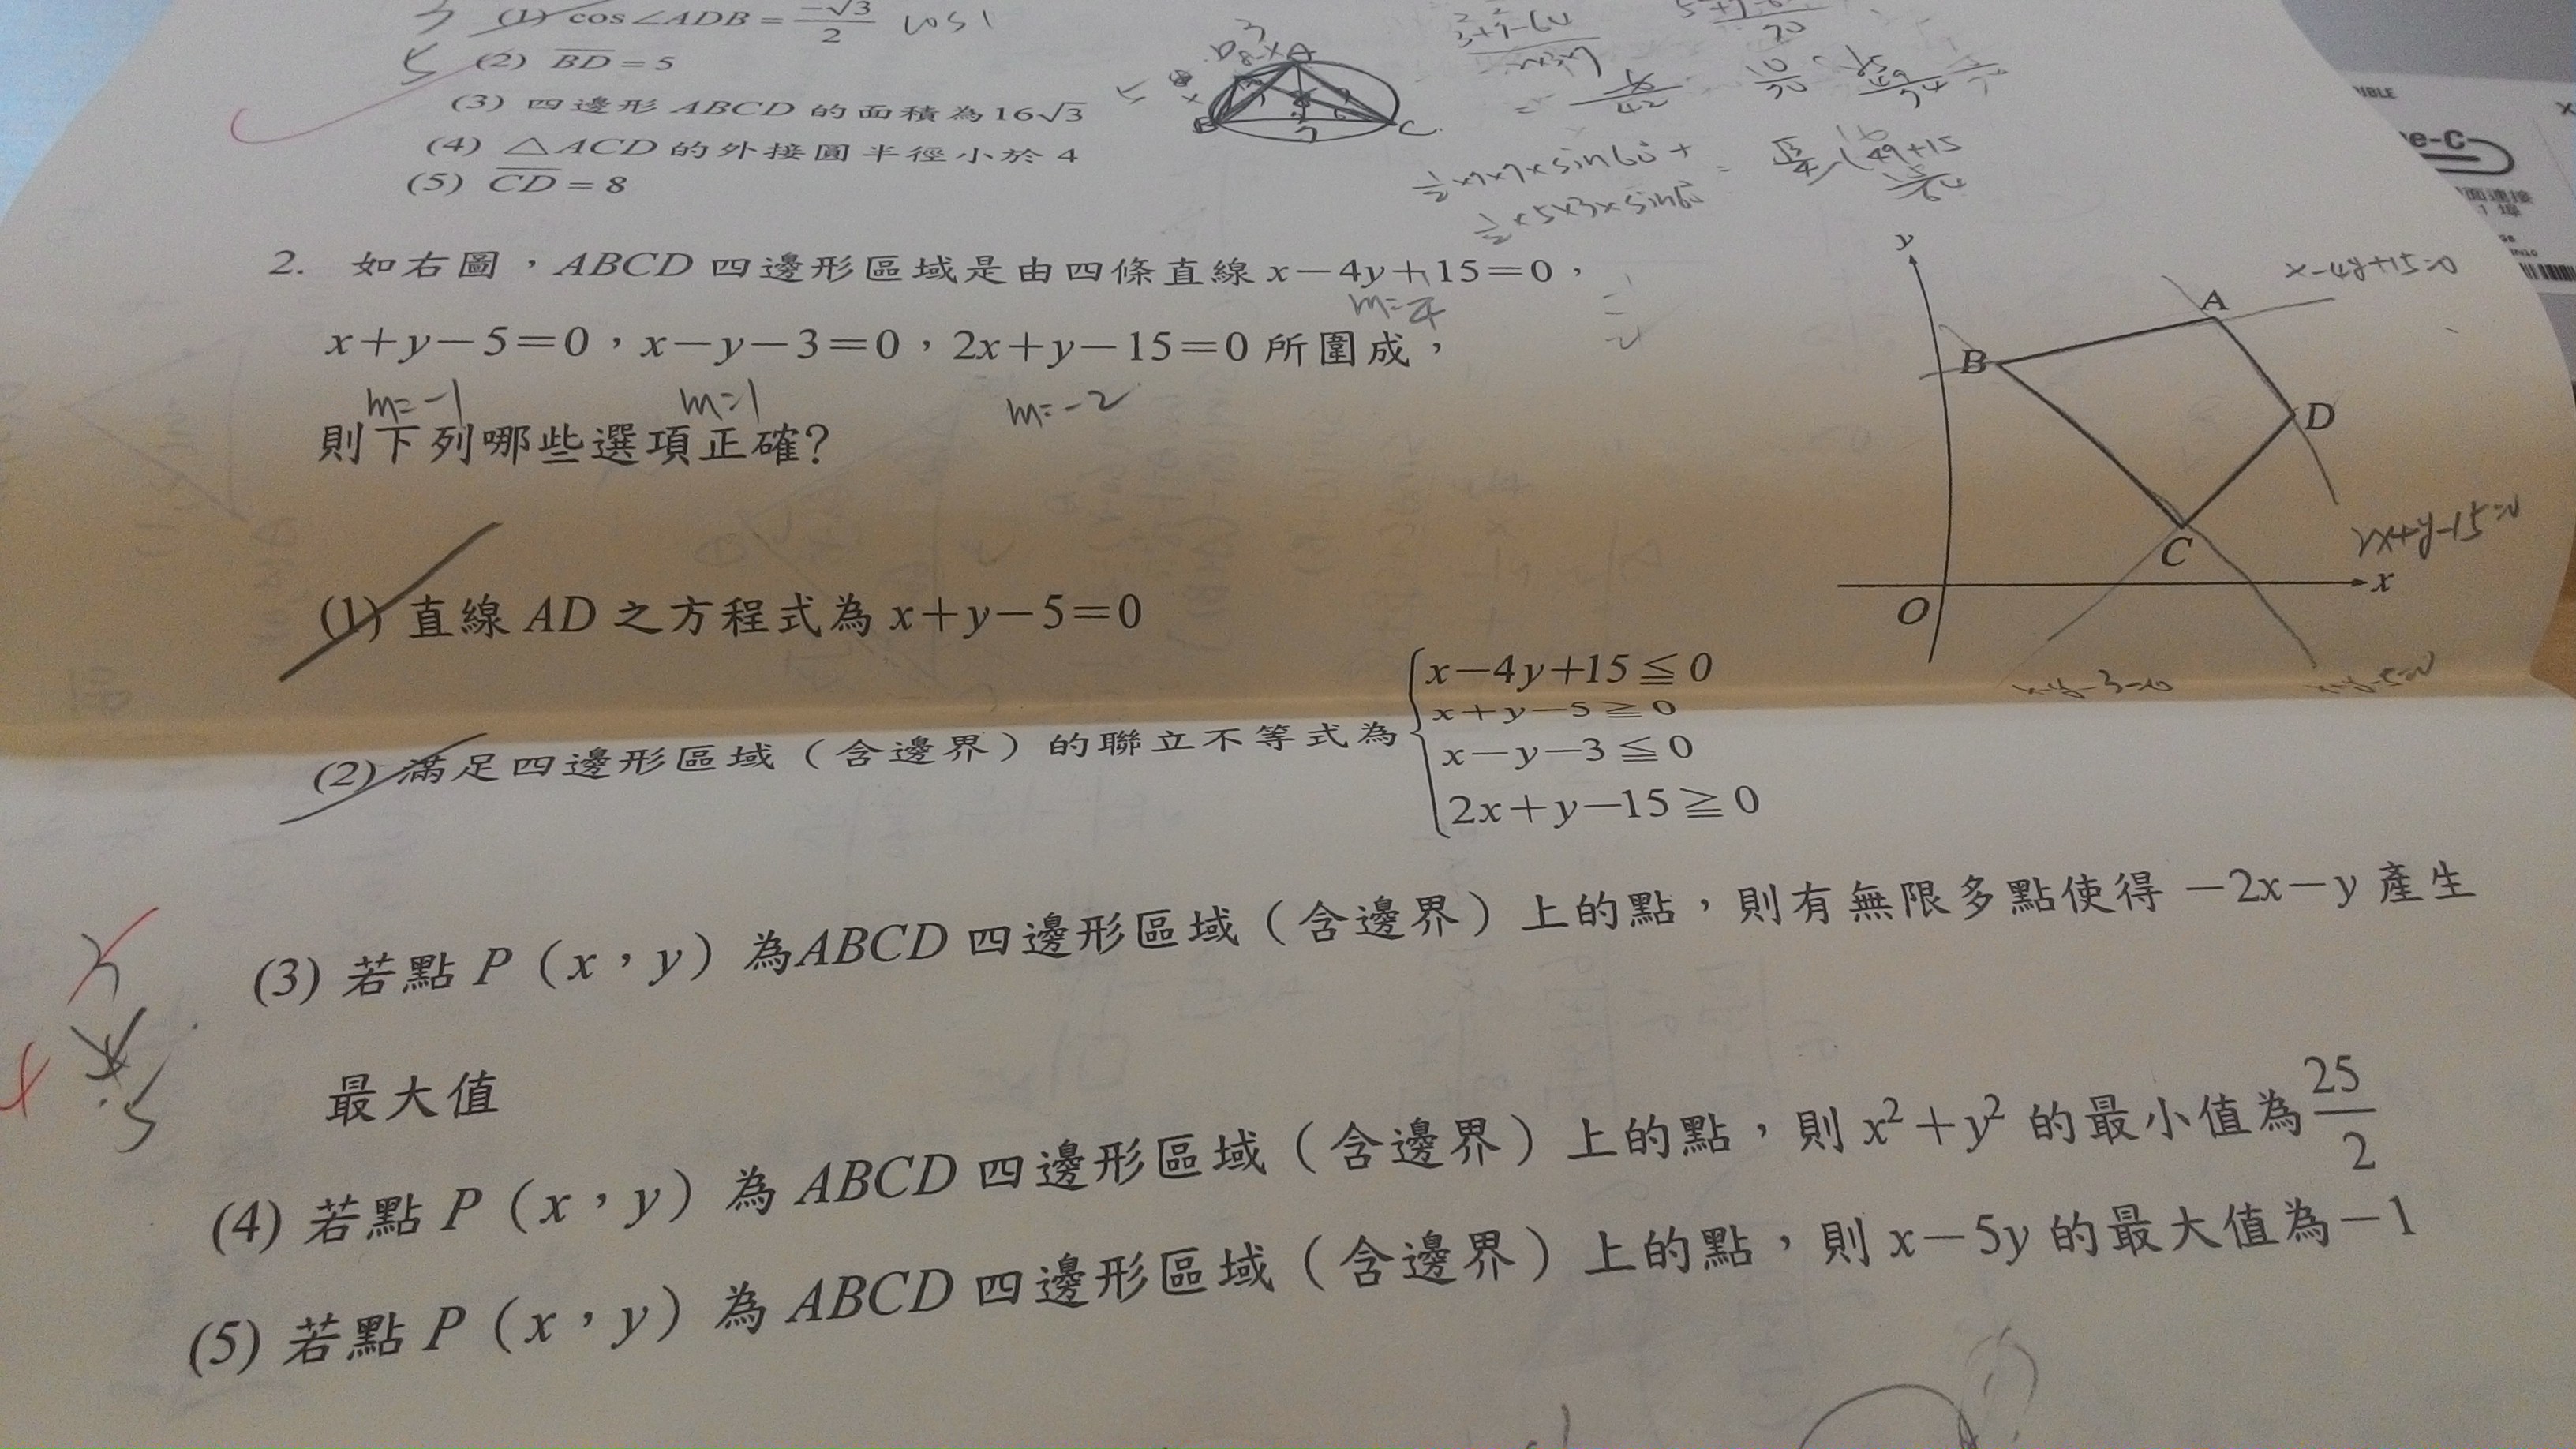 (1) cos∠ADB = -√3/2 cos
(2) BD = 5
(3) 四邊形 ABCD 的面積為16√3
(4) △ACD 的外接圓半徑小於 4
(5) CD = 8
2. 如右圖,ABCD 四邊形區域是由四條直線 x-4y+15=0,
x+y-5=0,x-y-3=0,2x+y-15=0 所圍成,
m=-1 m=1 m=-2
則下列哪些選項正確?
y
x-4y+15=0
A
B
D
C
2x+y-15=0
O x
(1) 直線 AD 之方程式為 x+y-5=0
(2) 滿足四邊形區域(含邊界)的聯立不等式為
x-4y+15≦0
x+y-5≧0
x-y-3≦0
2x+y-15≧0
(3) 若點 P(x,y)為ABCD 四邊形區域(含邊界)上的點,則有無限多點使得 -2x-y 產生
最大值
(4) 若點 P(x,y)為 ABCD 四邊形區域(含邊界)上的點,則 x²+y² 的最小值為25/2
(5) 若點 P(x,y)為 ABCD 四邊形區域(含邊界)上的點,則 x-5y 的最大值為-1